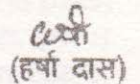 (हर्षा दास)